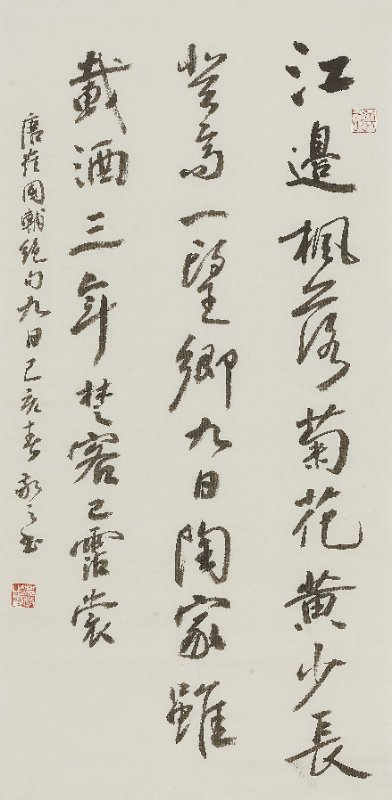 江邊楓落菊花黃少長
登高一望鄉九日陶家雖
載酒三年楚客已霑裳
唐崔國輔絕句九日己亥春永之書